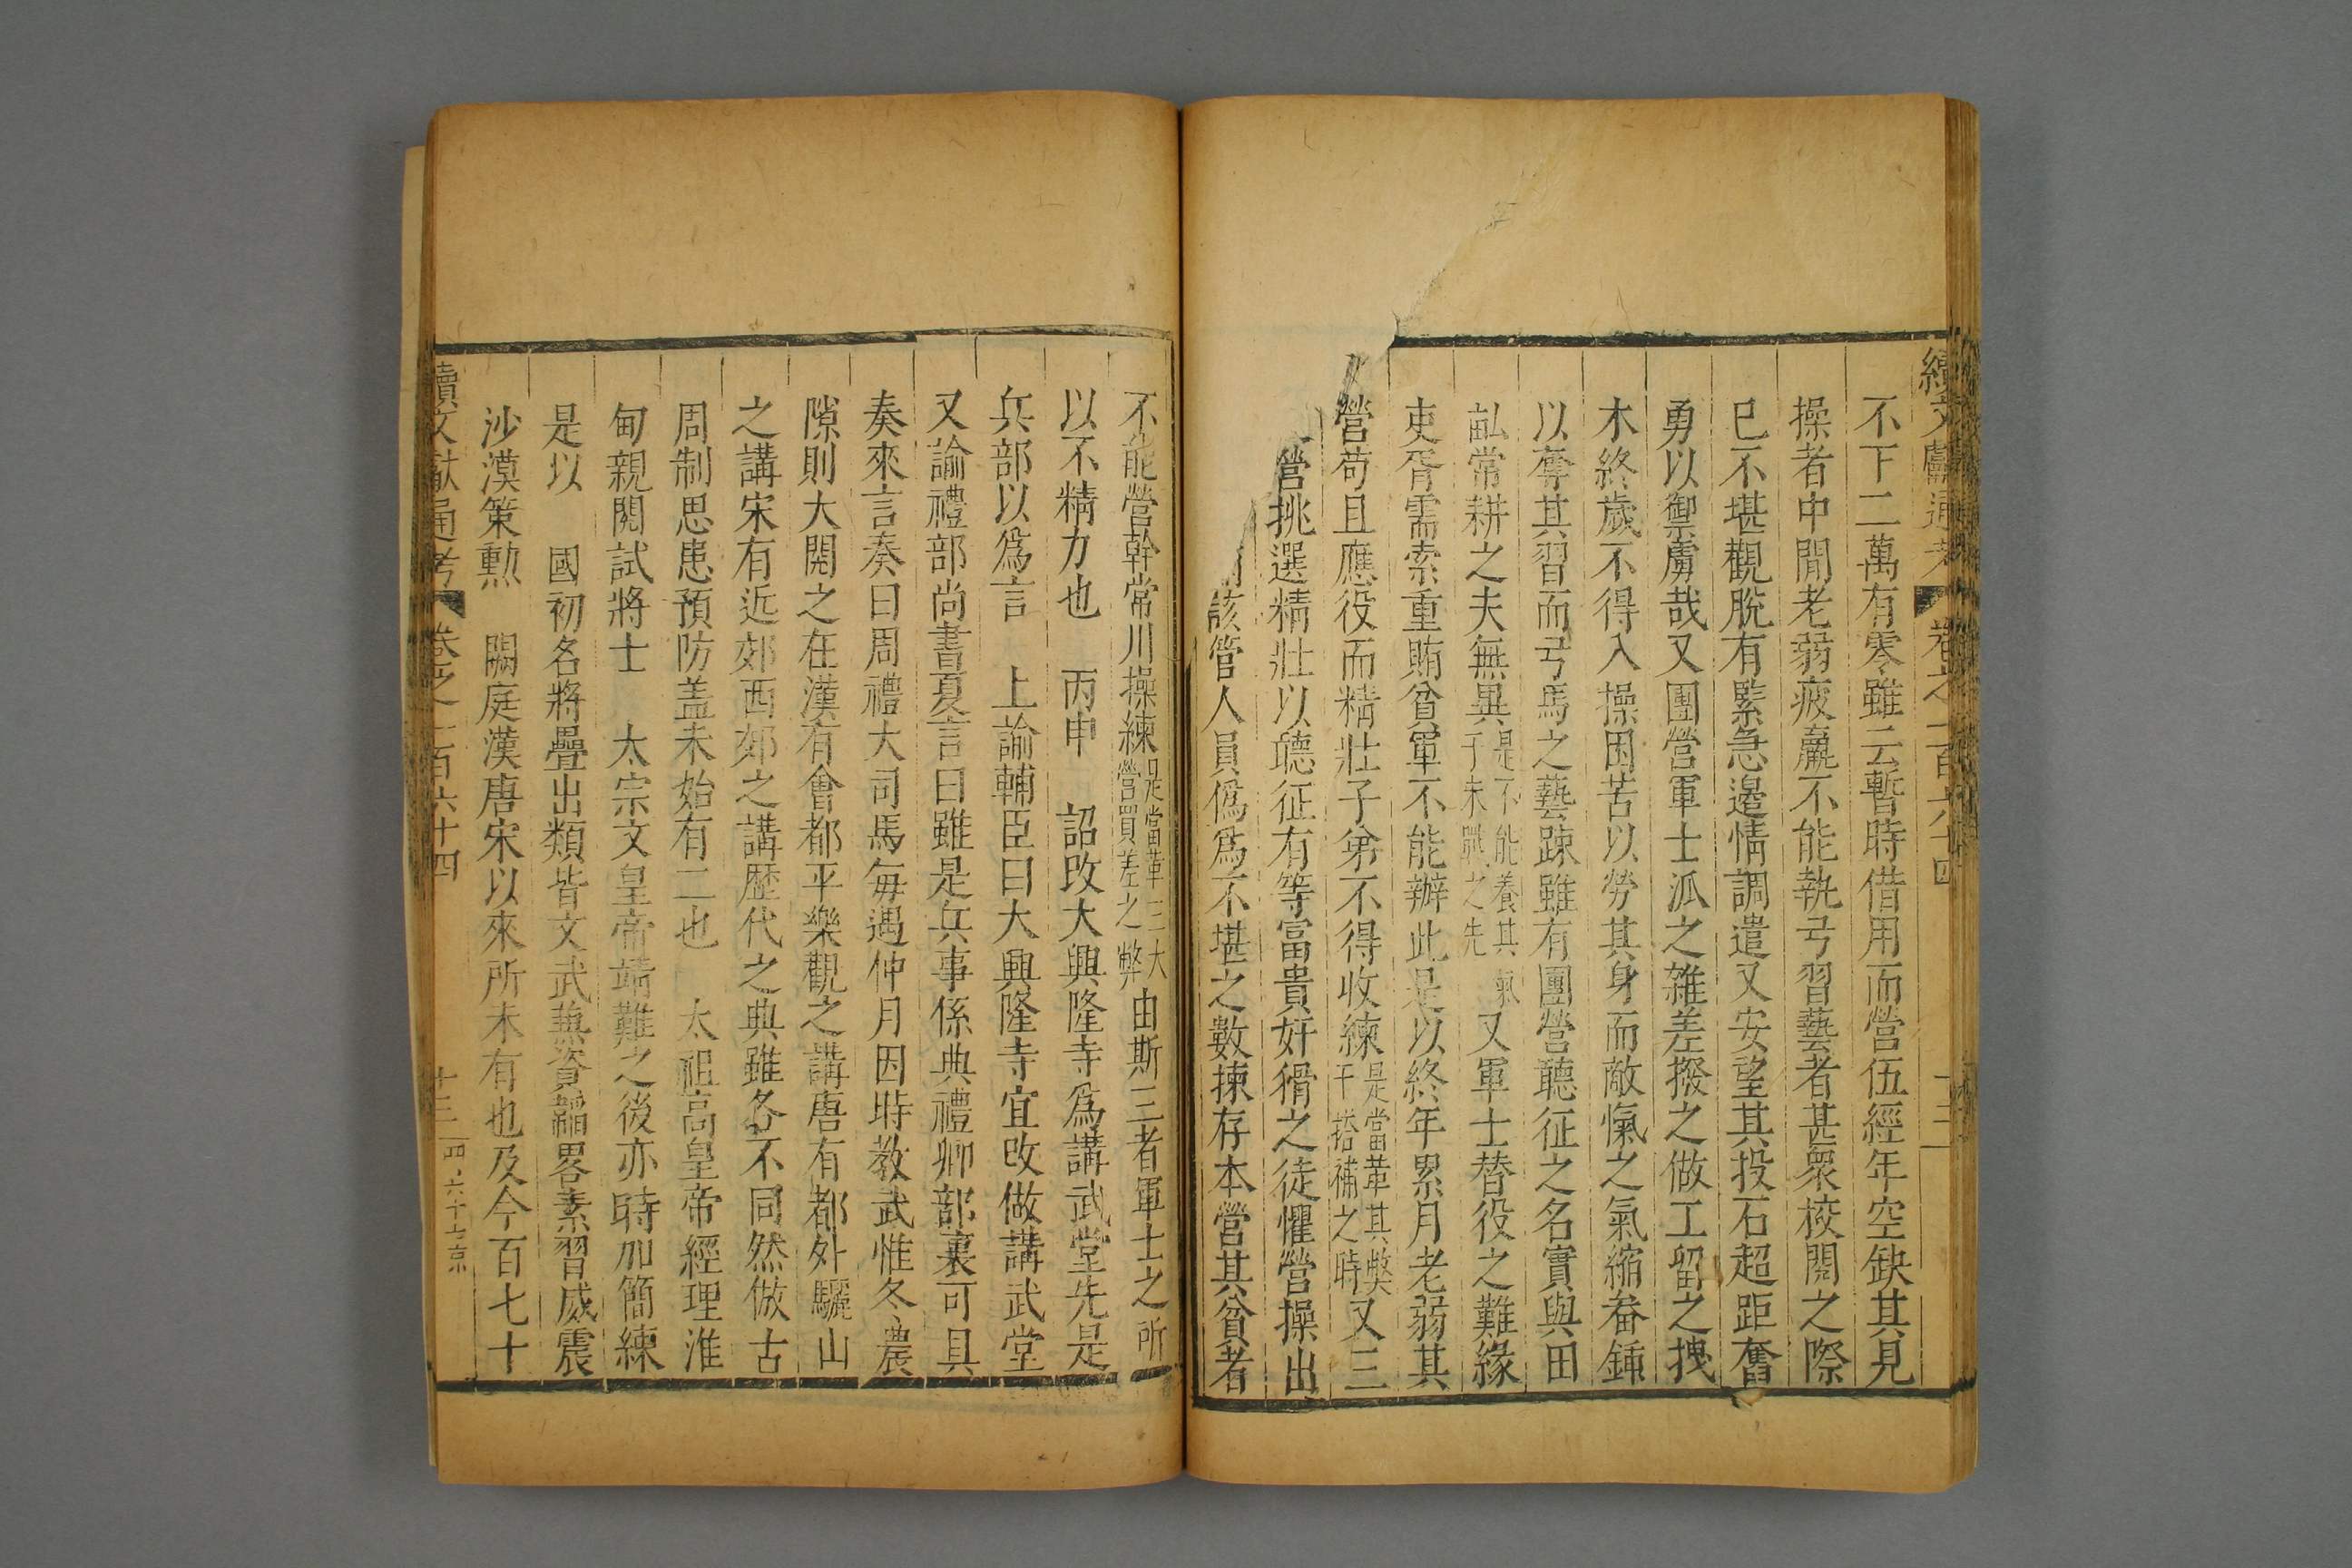 續文獻通考 卷之一百六十四 十三
不下二萬有零雖云暫時借用而營伍經年空缺其見
操者中間老弱疲羸不能執弓習藝者甚衆校閱之際
已不堪觀脫有緊急邉情調遣又安望其投石超距奮
勇以禦虜哉又團營軍士派之雜差撥之做工留之拽
木終歲不得入操困苦以勞其身而敵愾之氣縮畚鍤
以奪其習而弓馬之藝踈雖有團營聽征之名實與田
畆常耕之夫無異是不能養其氣于未戰之先又軍士替役之難緣
吏胥需索重賄貧軍不能辦此是以終年累月老弱其
營苟且應役而精壯子弟不得收練是當革其弊于拾補之時又三
營挑選精壯以聽征有等富貴奸猾之徒懼營操出
該管人員僞爲不堪之數揀存本營其貧者
不能營幹常川操練是當革三大營買差之弊由斯三者軍士之所
以不精力也 丙申 詔改大興隆寺爲講武堂先是
兵部以爲言 上諭輔臣曰大興隆寺宜改做講武堂
又諭禮部尚書夏言曰雖是兵事係典禮卿部裏可具
奏來言奏曰周禮大司馬毎遇仲月因時教武惟冬農
隙則大閱之在漢有會都平樂觀之講唐有都外驪山
之講宋有近郊西郊之講歷代之典雖各不同然倣古
周制思患預防盖未始有二也 太祖高皇帝經理淮
甸親閱試將士 太宗文皇帝靖難之後亦時加簡練
是以 國初名將疊出類皆文武兼資韜畧素習威震
沙漠策勲 闕庭漢唐宋以來所未有也及今百七十
續文獻通考 卷之一百六十四 十三 四 六十七 京